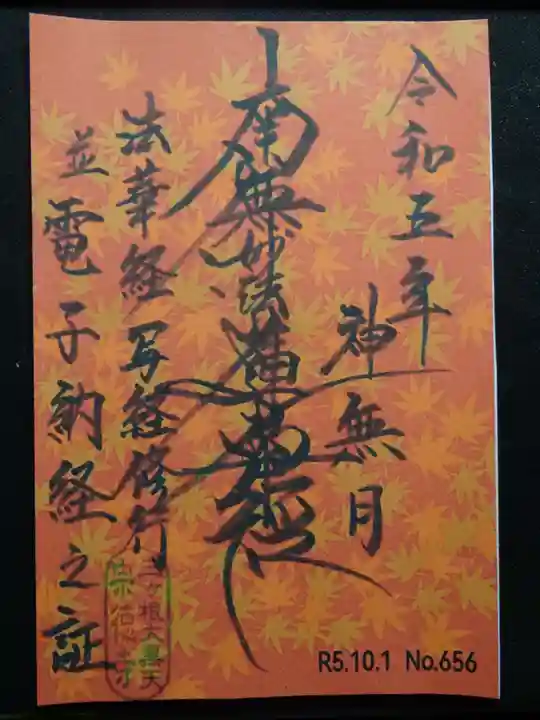 令和五年
神無月
南無妙法蓮華経
法華経写経修行
並電子納経之証
R5.10.1 No.656